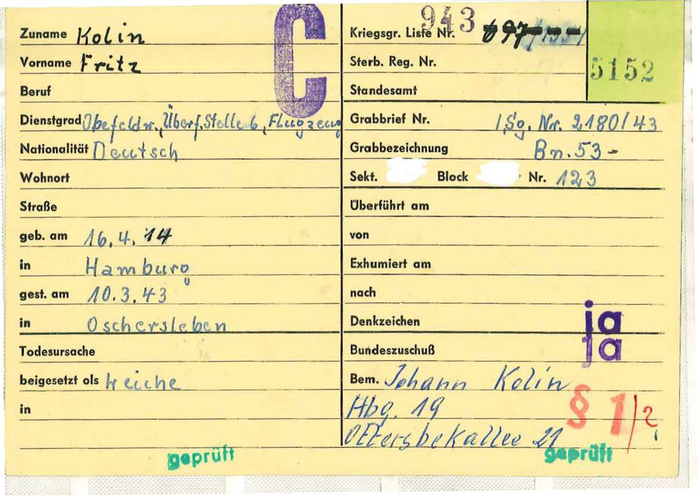 Zuname Kolin
Vorname Fritz
Beruf
Dienstgrad Obefeldw., Überf. Stelle 6, Flugzeug
Nationalität Deutsch
Wohnort
Straße
geb. am 16.4.14
in Hamburg
gest. am 10.3.43
in Oschersleben
Todesursache
beigesetzt als Leiche
in
geprüft
C
Kriegsgr. Liste Nr. 943
Sterb. Reg. Nr.
5152
Standesamt
Grabbrief Nr. Nr. 2180/43
Grabbezeichnung Bn. 53-
Sekt. Block Nr. 123
Überführt am
von
Exhumiert am
nach
Denkzeichen ja
Bundeszuschuß ja
Bem. Johann Kolin
Hbg. 19
21
§ 1/2
geprüft